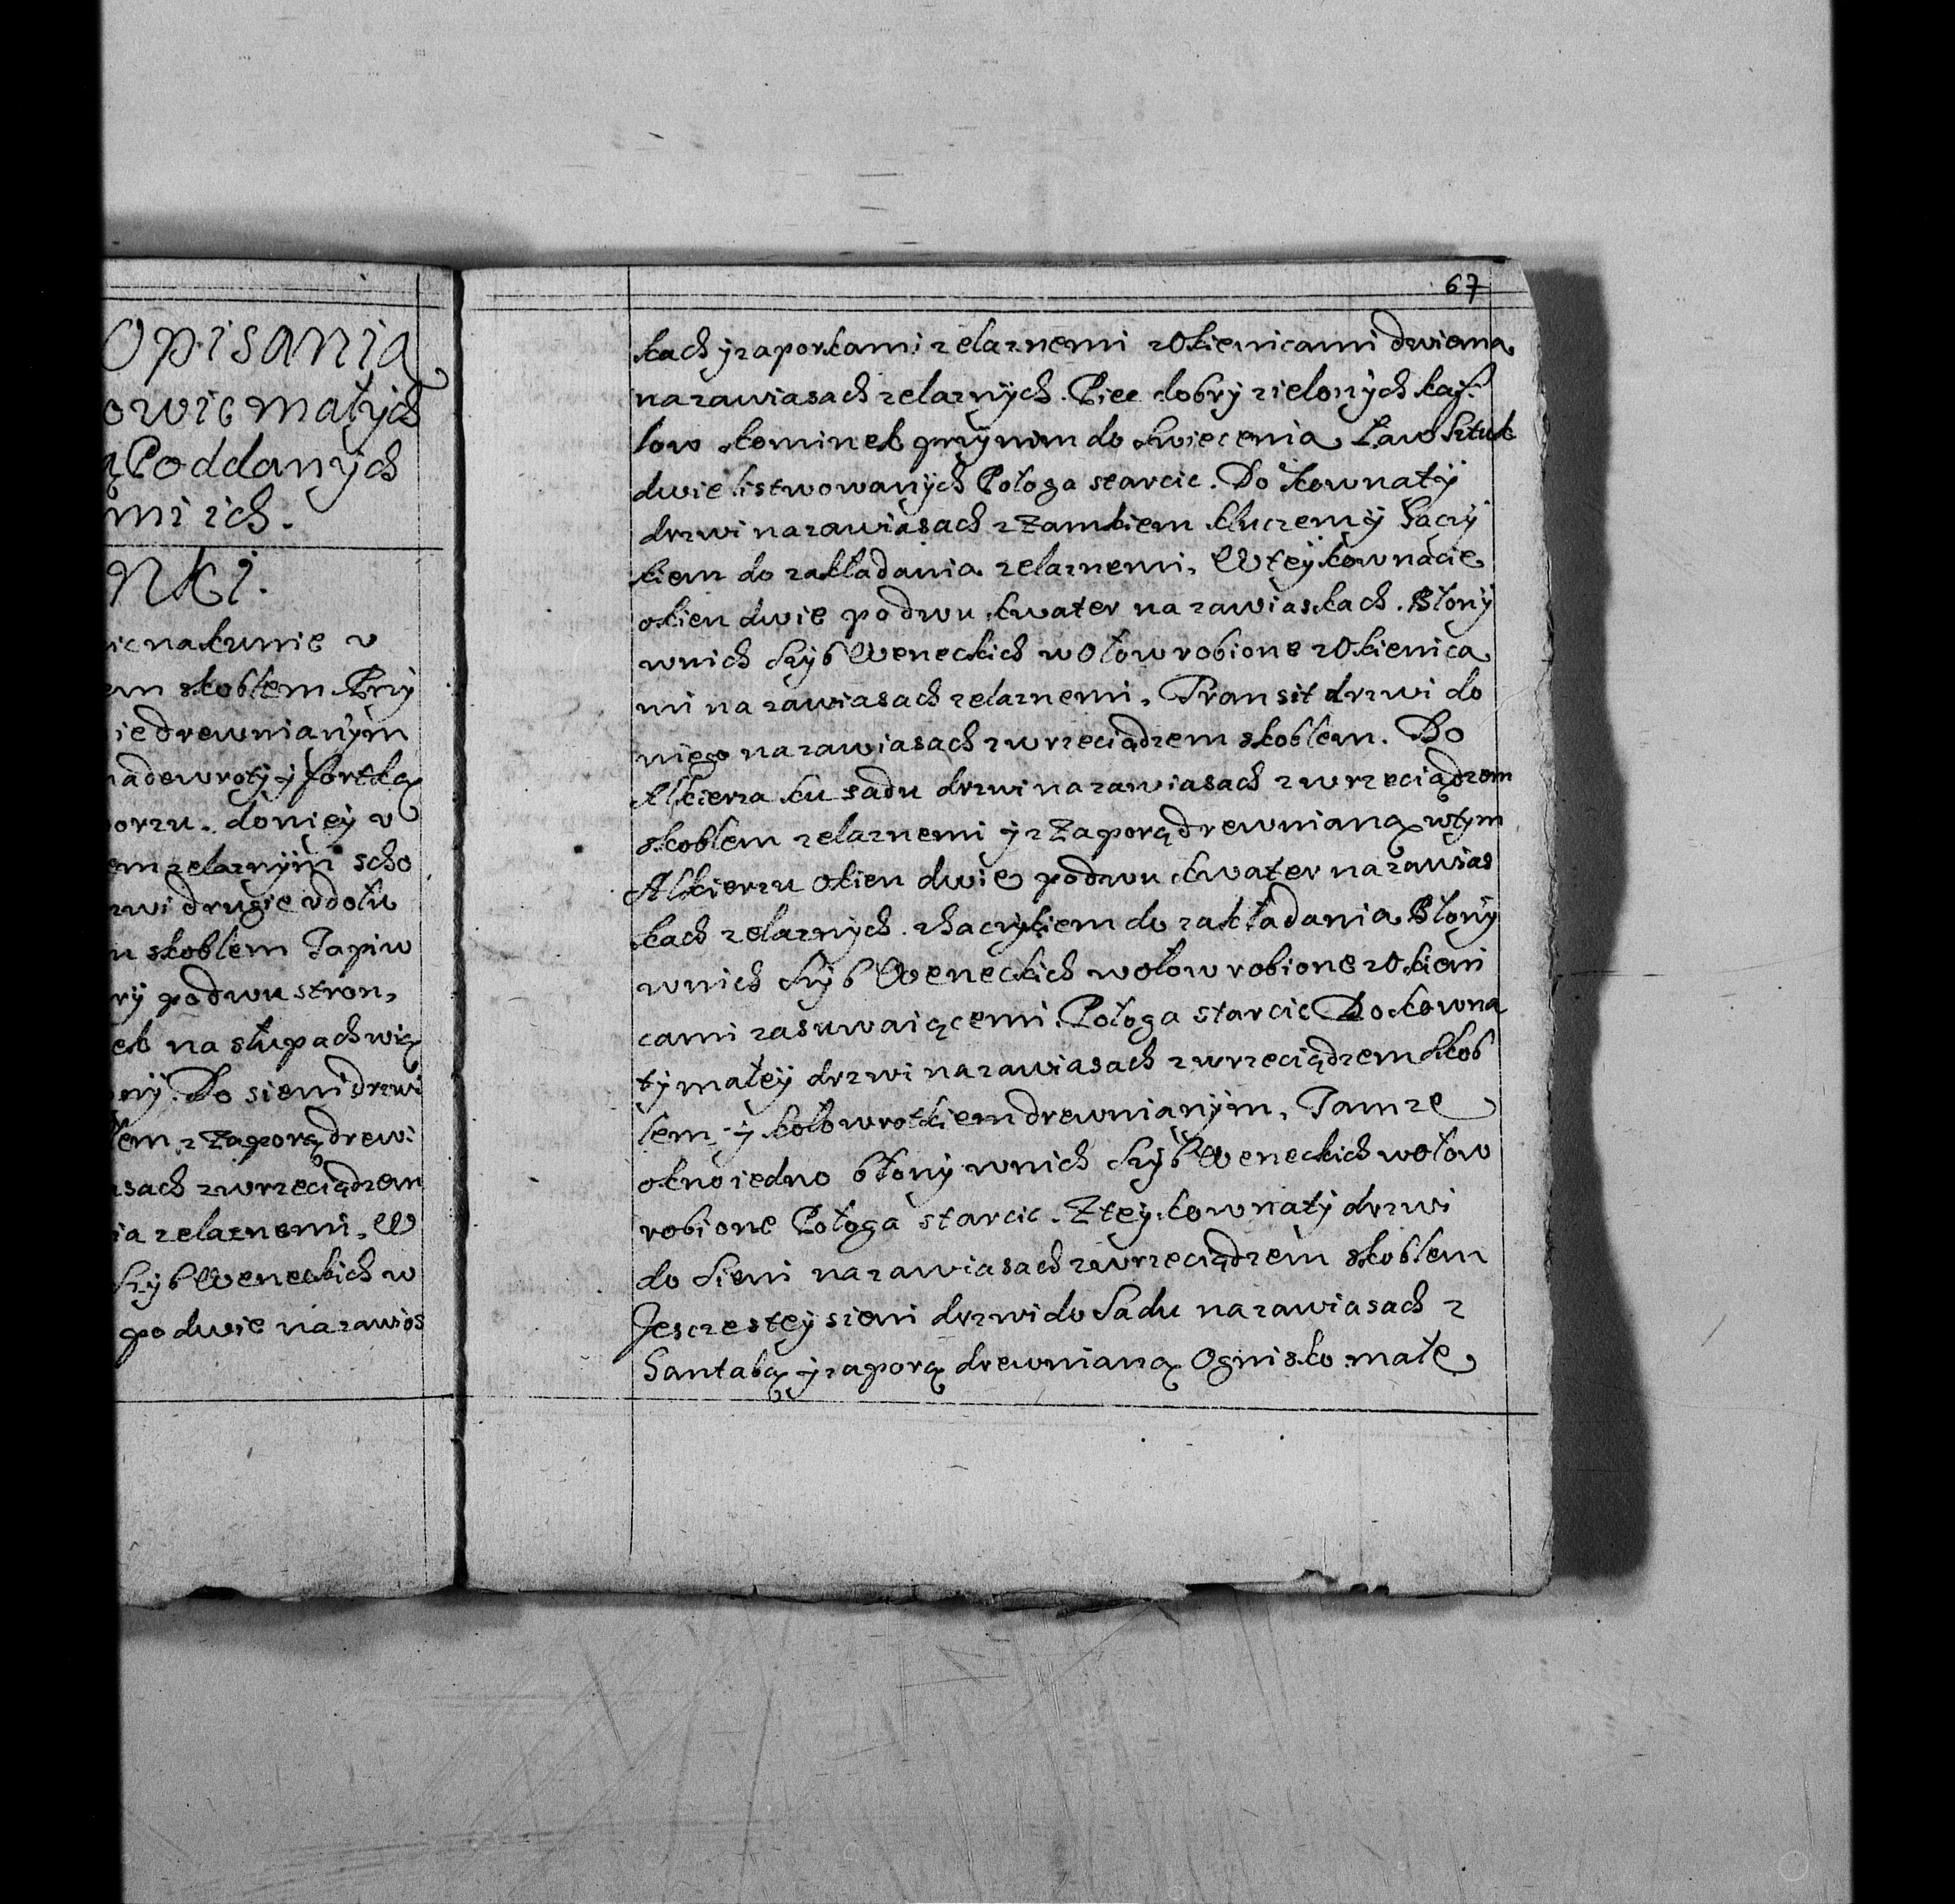 Opisania
owic małych
ą Poddanych
mi ich.
nki.
ic na kunie v
em skoblem Przy
ie drewnianym
nade wroty y fortką
worzu. do niey v
em zelaznym scho
rzwi drugie v dołu
m skoblem Ta piw
ry po dwu stron,
ek na słupach wią
ny. Do sieni drzwi
lem, z Zaporą drewi
asach z wrzeciądzem
ia zelaznemi, W
szyb Weneckich w
po dwie na zawias
67
kach y zaporkami zelaznemi z Okienicami dwiema
na zawiasach zelaznych. Piec dobry zielonych kaf:
low kominek przy nim do swiecenia Ław Sztuk
dwie listwowanych Połoga starcic. Do Kownaty
drzwi na zawiasach z Zamkiem kluczem y haczy
kiem do zakładania zelaznemi, W tey kownacie
okien dwie po dwu kwater na zawiaskach. Błony
w nich szyb Weneckich w Ołow robione z Okienica
mi na zawiasach zelaznemi, Transit drzwi do
niego na zawiasach z wrzeciądzem skoblem. Do
Alkierza ku sadu drzwi na zawiasach z wrzeciądzem
skoblem zelaznemi y z Zaporą drewnianą w tym
Alkierzu okien dwie po dwu kwater na zawias
kach zelaznych. z haczykiem do zakładania Błony
w nich szyb Weneckich w ołow robione z Okieni
cami zasuwaiącemi. Połoga starcic Do kowna
ty małey drzwi na zawiasach z wrzeciądzem skob
lem, y kołowrotkiem drewnianym, Tamze
okno iedno błony w nich szyb Weneckich w ołow
robione Połoga starcic. Z tey kownaty drzwi
do sieni na zawiasach z wrzeciądzem skoblem
Jescze s tey sieni drzwi do Sadu na zawiasach z
Santabą y zaporą drewnianą Ognisko małe